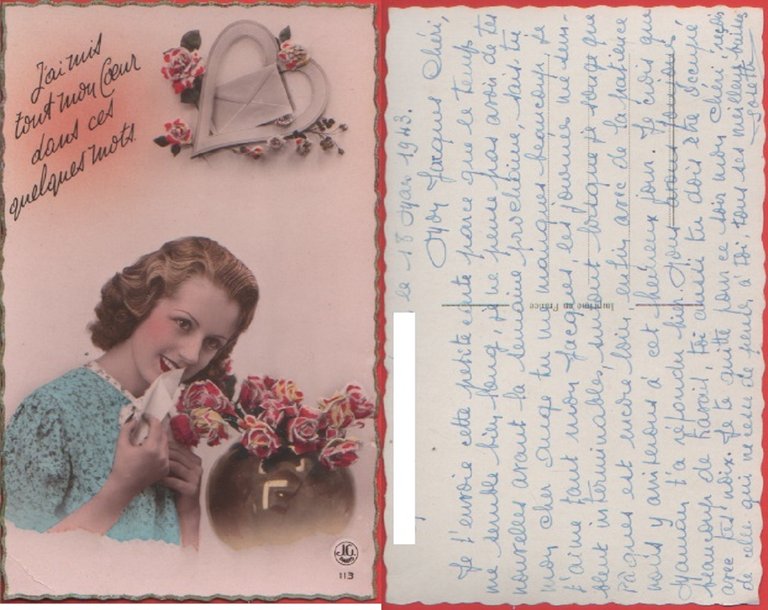 J'ai mis
tout mon Cœur
dans ces
quelques mots.
JG
113
le 18 Mars 1943.
Mon Jacques Chéri,
Je t'envoie cette petite carte parce que le temps
me semble bien long, et ne pense pas avoir de tes
nouvelles avant la semaine prochaine, sais tu
mon cher ange tu me manques beaucoup, je
t'aime tant mon Jacques les journées me sem-
blent interminables, surtout lorsque je songe que
Pâques est encore loin, enfin avec de la patience
nous y arriverons à cet heureux jour. Je crois que
Maman t'a répondu hier. Nous avons
beaucoup de travail, toi aussi tu dois être occupé
avec tes noix. Je te quitte pour ce soir mon chéri reçois
de celle qui ne cesse de penser à toi, tous ses meilleurs baisers
Imprimé en France